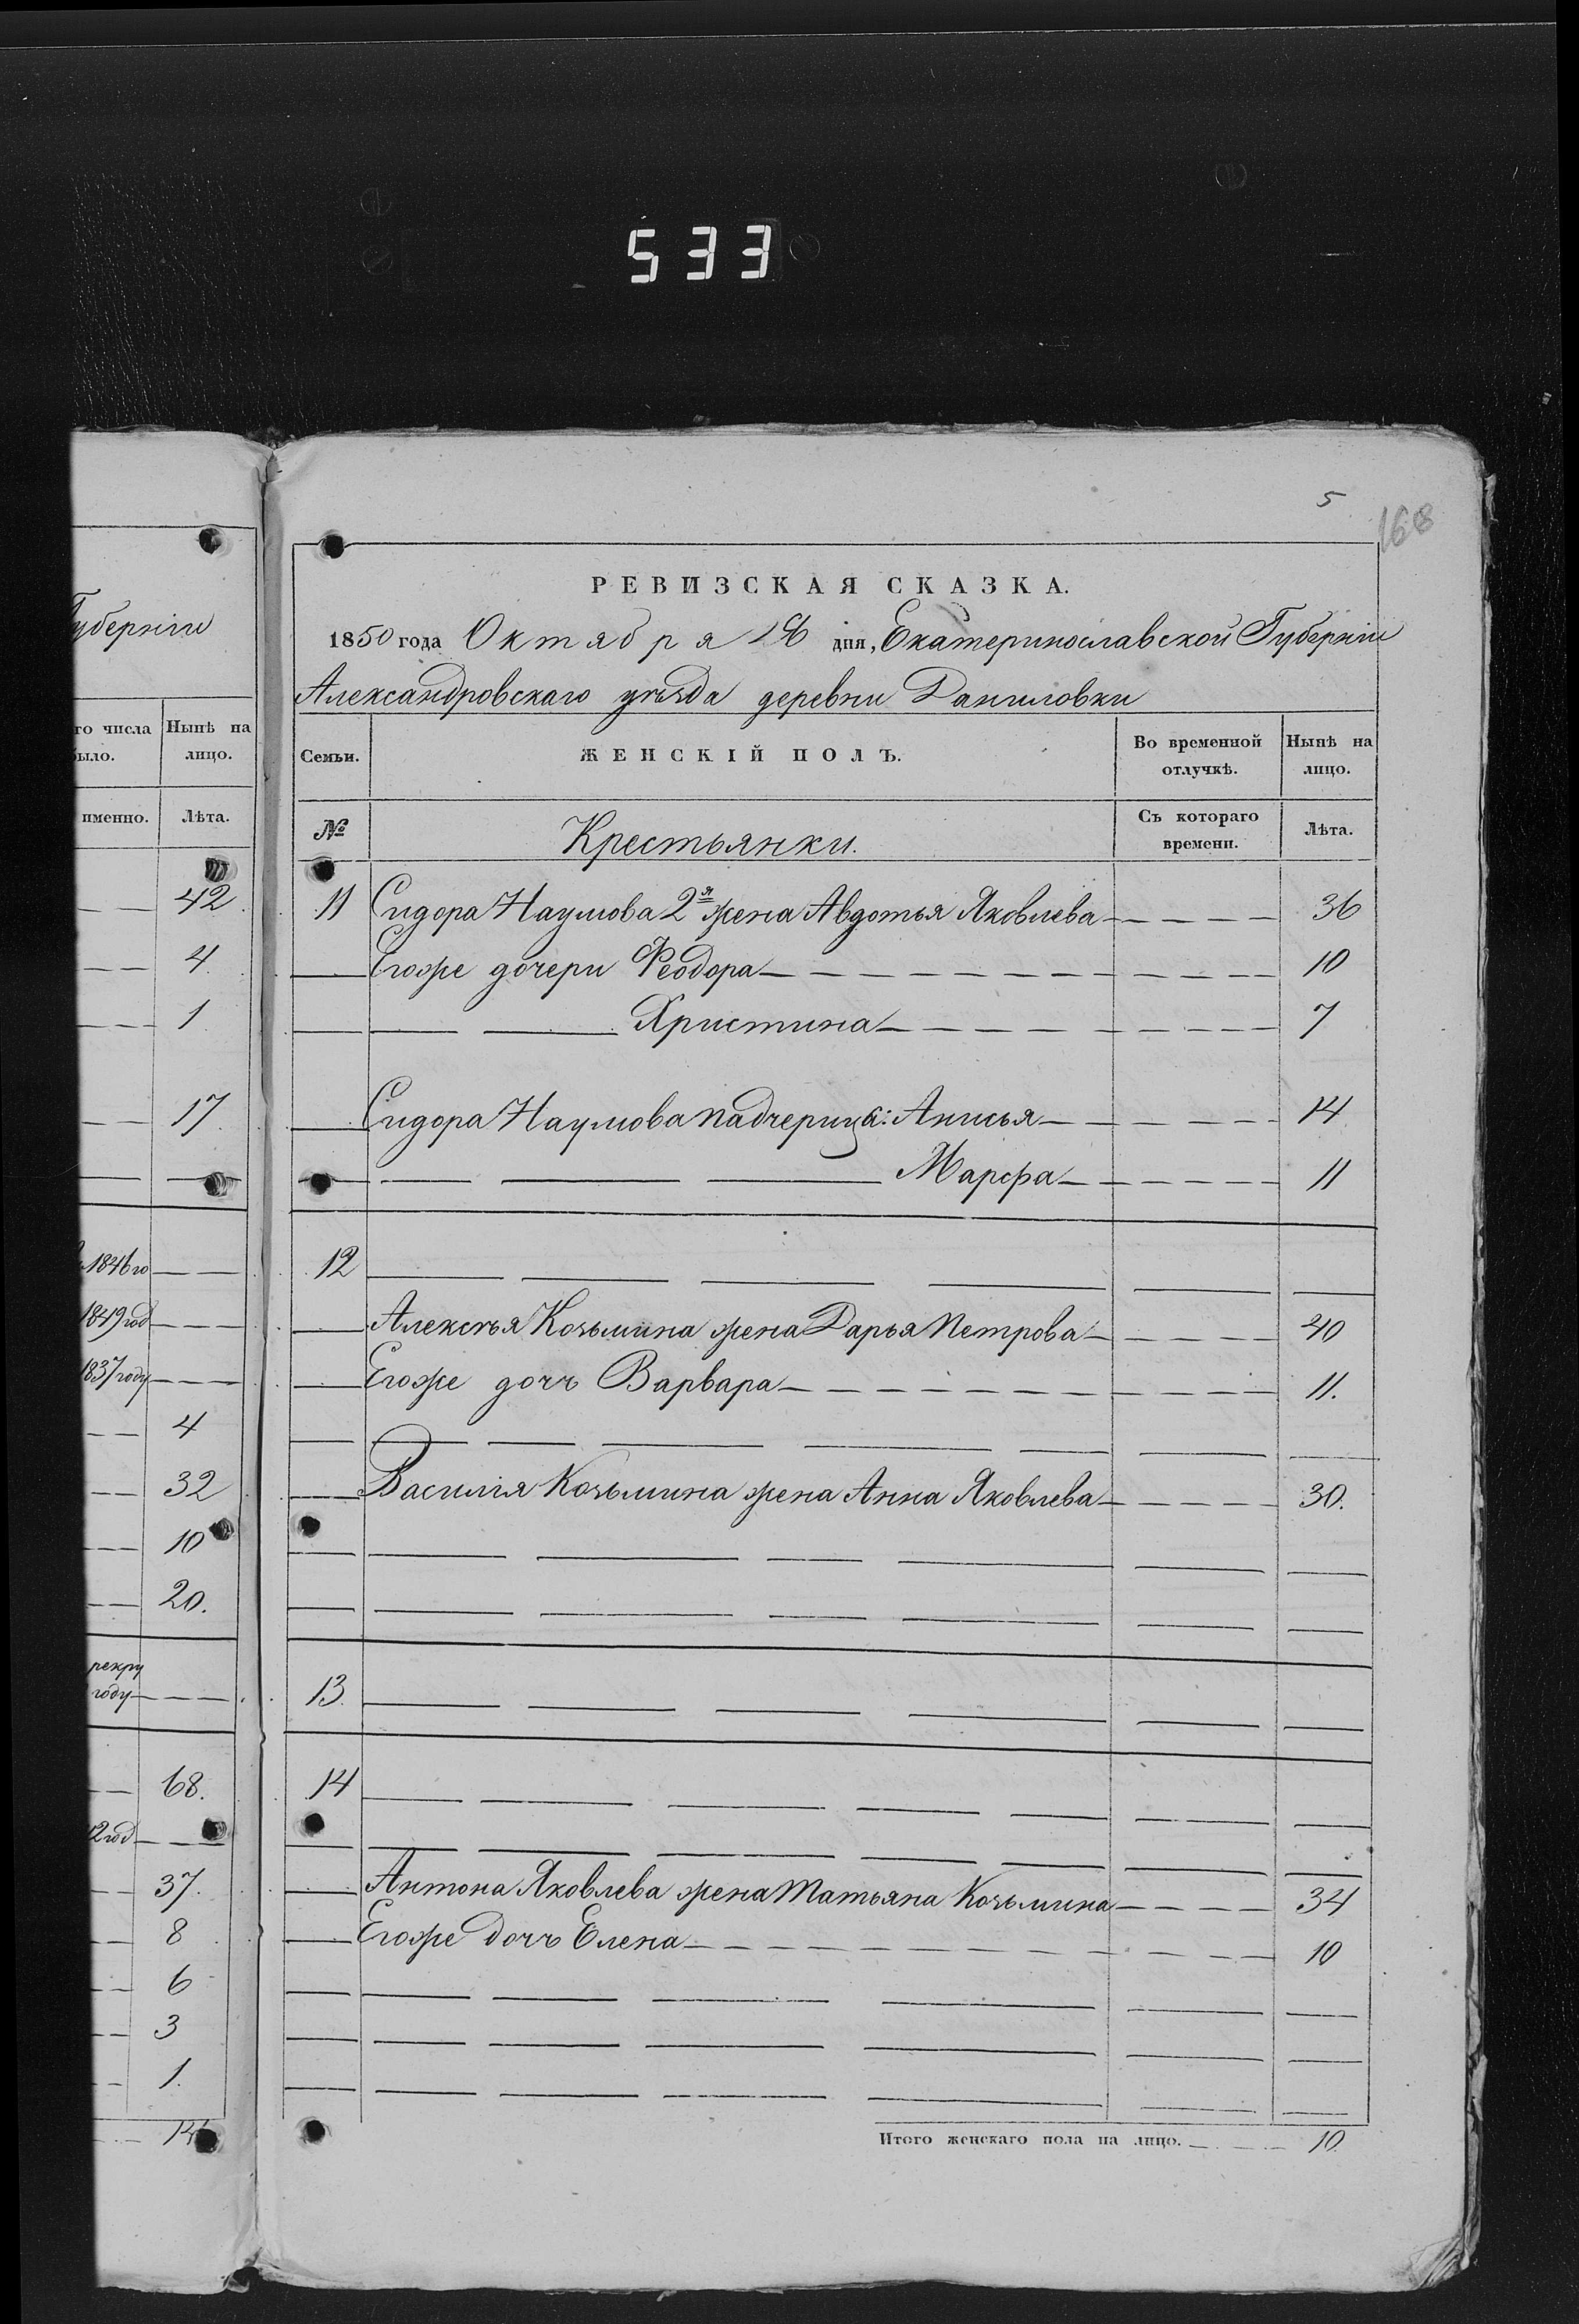 533
5
168
Губерніи
го числа
было.
Нынѣ на
лицо.
именно.
Лѣта.
42
4
1
17
1846го
1849год
1837году
4
32
10
20.
рекру
году
68.
2год
37.
8
6
3
1.
14
РЕВИЗСКАЯ СКАЗКА.
1850 года Октября дня, Екатеринославской Губерніи
Александровскаго уѣзда деревни Даниловки
Семьи.
ЖЕНСКІЙ ПОЛЪ.
Во временной
отлучкѣ.
Нынѣ на
лицо.
№
Крестьянки.
Съ котораго
времени.
Лѣта.
11 Сидора Наумова 2я жена Авдотья Яковлева 36
Егоже дочери Феодора 10
Христина 7
Сидора Наумова падчерица: Анисья 14
Марфа 11
12
Алексѣя Козьмина жена Дарья Петрова 40
Егоже дочь Варвара 11.
Василія Козьмина жена Анна Яковлева 30.
13.
14
Антона Яковлева жена Татьяна Козьмина 34
Егоже дочь Елена 10
Итого женскаго пола на лицо. 10.